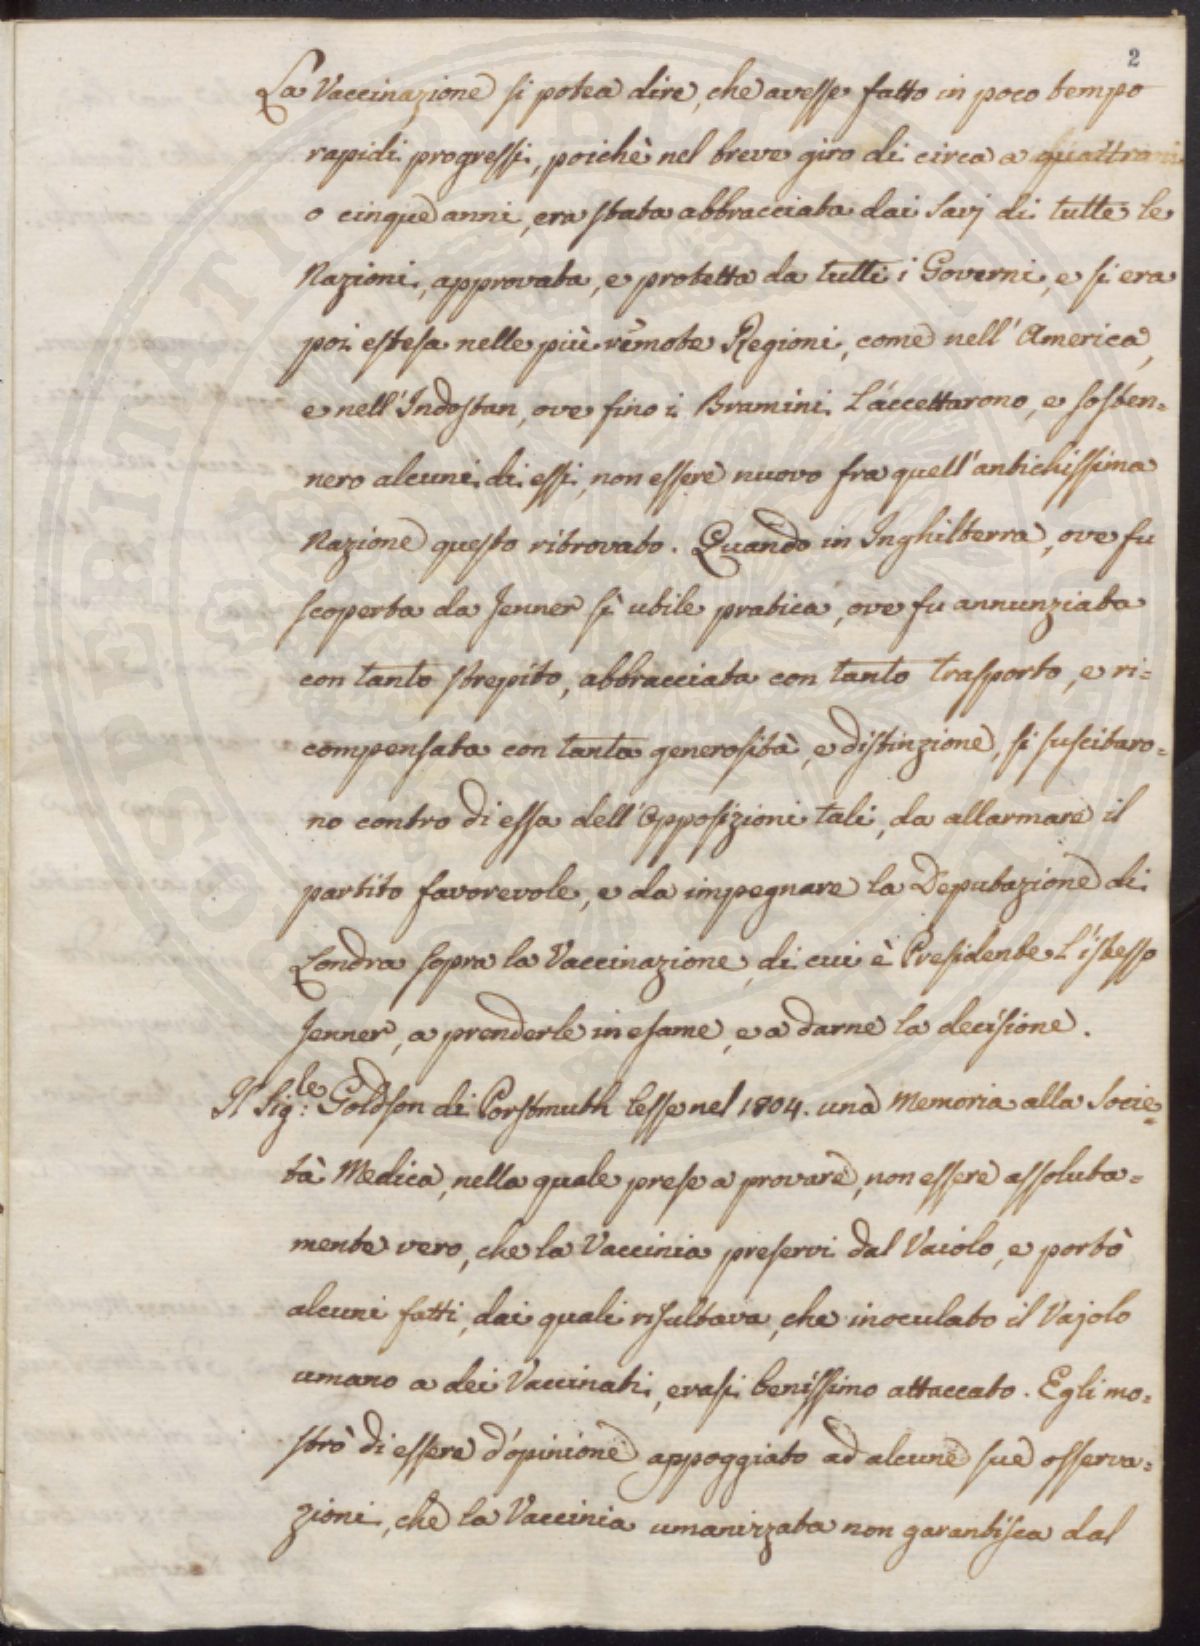 2
La Vaccinazione si potea dire, che avesse fatto in poco tempo
rapidi progressi, poichè nel breve giro di circa a quattro
o cinque anni, era stata abbracciata dai Savj di tutte le
Nazioni, approvata, e protetta da tutti i Governi, e si era
poi estesa nelle più remote Regioni, come nell'America,
e nell'Indostan, ove fino i Bramini l'accettarono, e sosten=
nero alcuni di essi, non essere nuovo fra quell'antichissima
Nazione questo ritrovato. Quando in Inghilterra, ove fu
scoperta da Jenner sì utile pratica, ove fu annunziata
con tanto strepito, abbracciata con tanto trasporto, e ri=
compensata con tanta generosità, e distinzione, si suscitaro=
no contro di essa dell'Opposizioni tali, da allarmare il
partito favorevole, e da impegnare la Deputazione di
Londra sopra la Vaccinazione, di cui è Presidente l'istesso
Jenner, a prenderle in esame, e a darne la decisione.
Il Sig:le Goldson di Porstmuth lesse nel 1804. una Memoria alla Socie=
tà Medica, nella quale prese a provare, non essere assoluta=
mente vero, che la Vaccinia preservi dal Vaiolo, e portò
alcuni fatti, dai quali risultava, che inoculato il Vajolo
umano a dei Vaccinati, erasi benissimo attaccato. Egli mo=
strò di essere d'opinione appoggiato ad alcune sue osserva=
zioni, che la Vaccinia umanizzata non garantisca dal